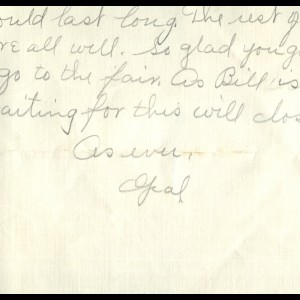 ould last long. The rest of
re all well. So glad you go
go to the fair. As Bill is
aiting for this will clos
As ever,
Opal